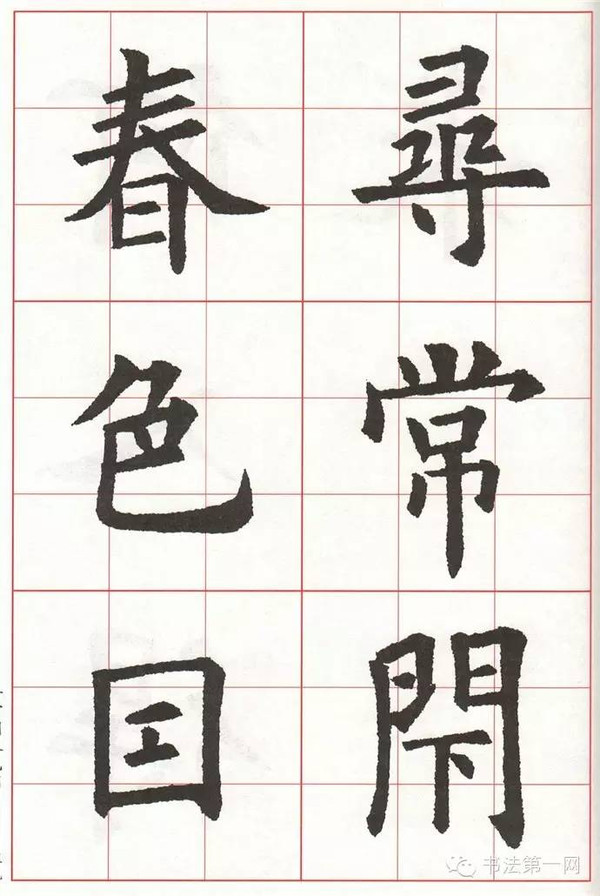 尋常閇
春色因
书法第一网